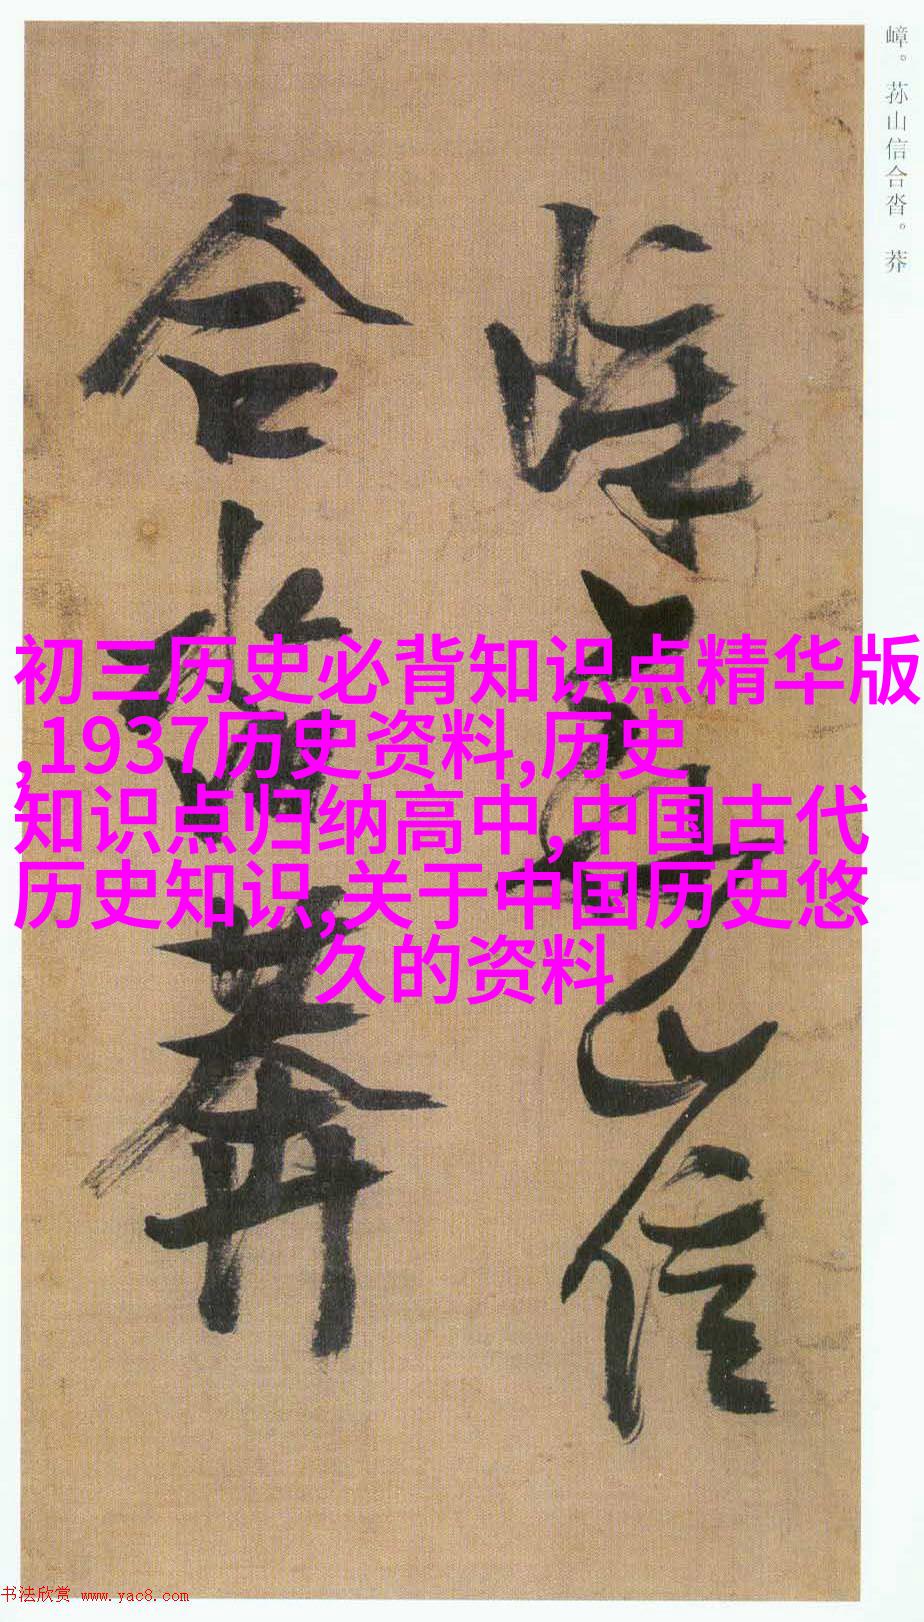 嶂。荪山信合沓。莽
嶂荪山信
合沓莽
初三历史必背知识点精华版
,1937历史资料,历史
知识点归纳高中,中国古代
历史知识,关于中国历史悠
久的资料
书法欣赏 www.yac8.com